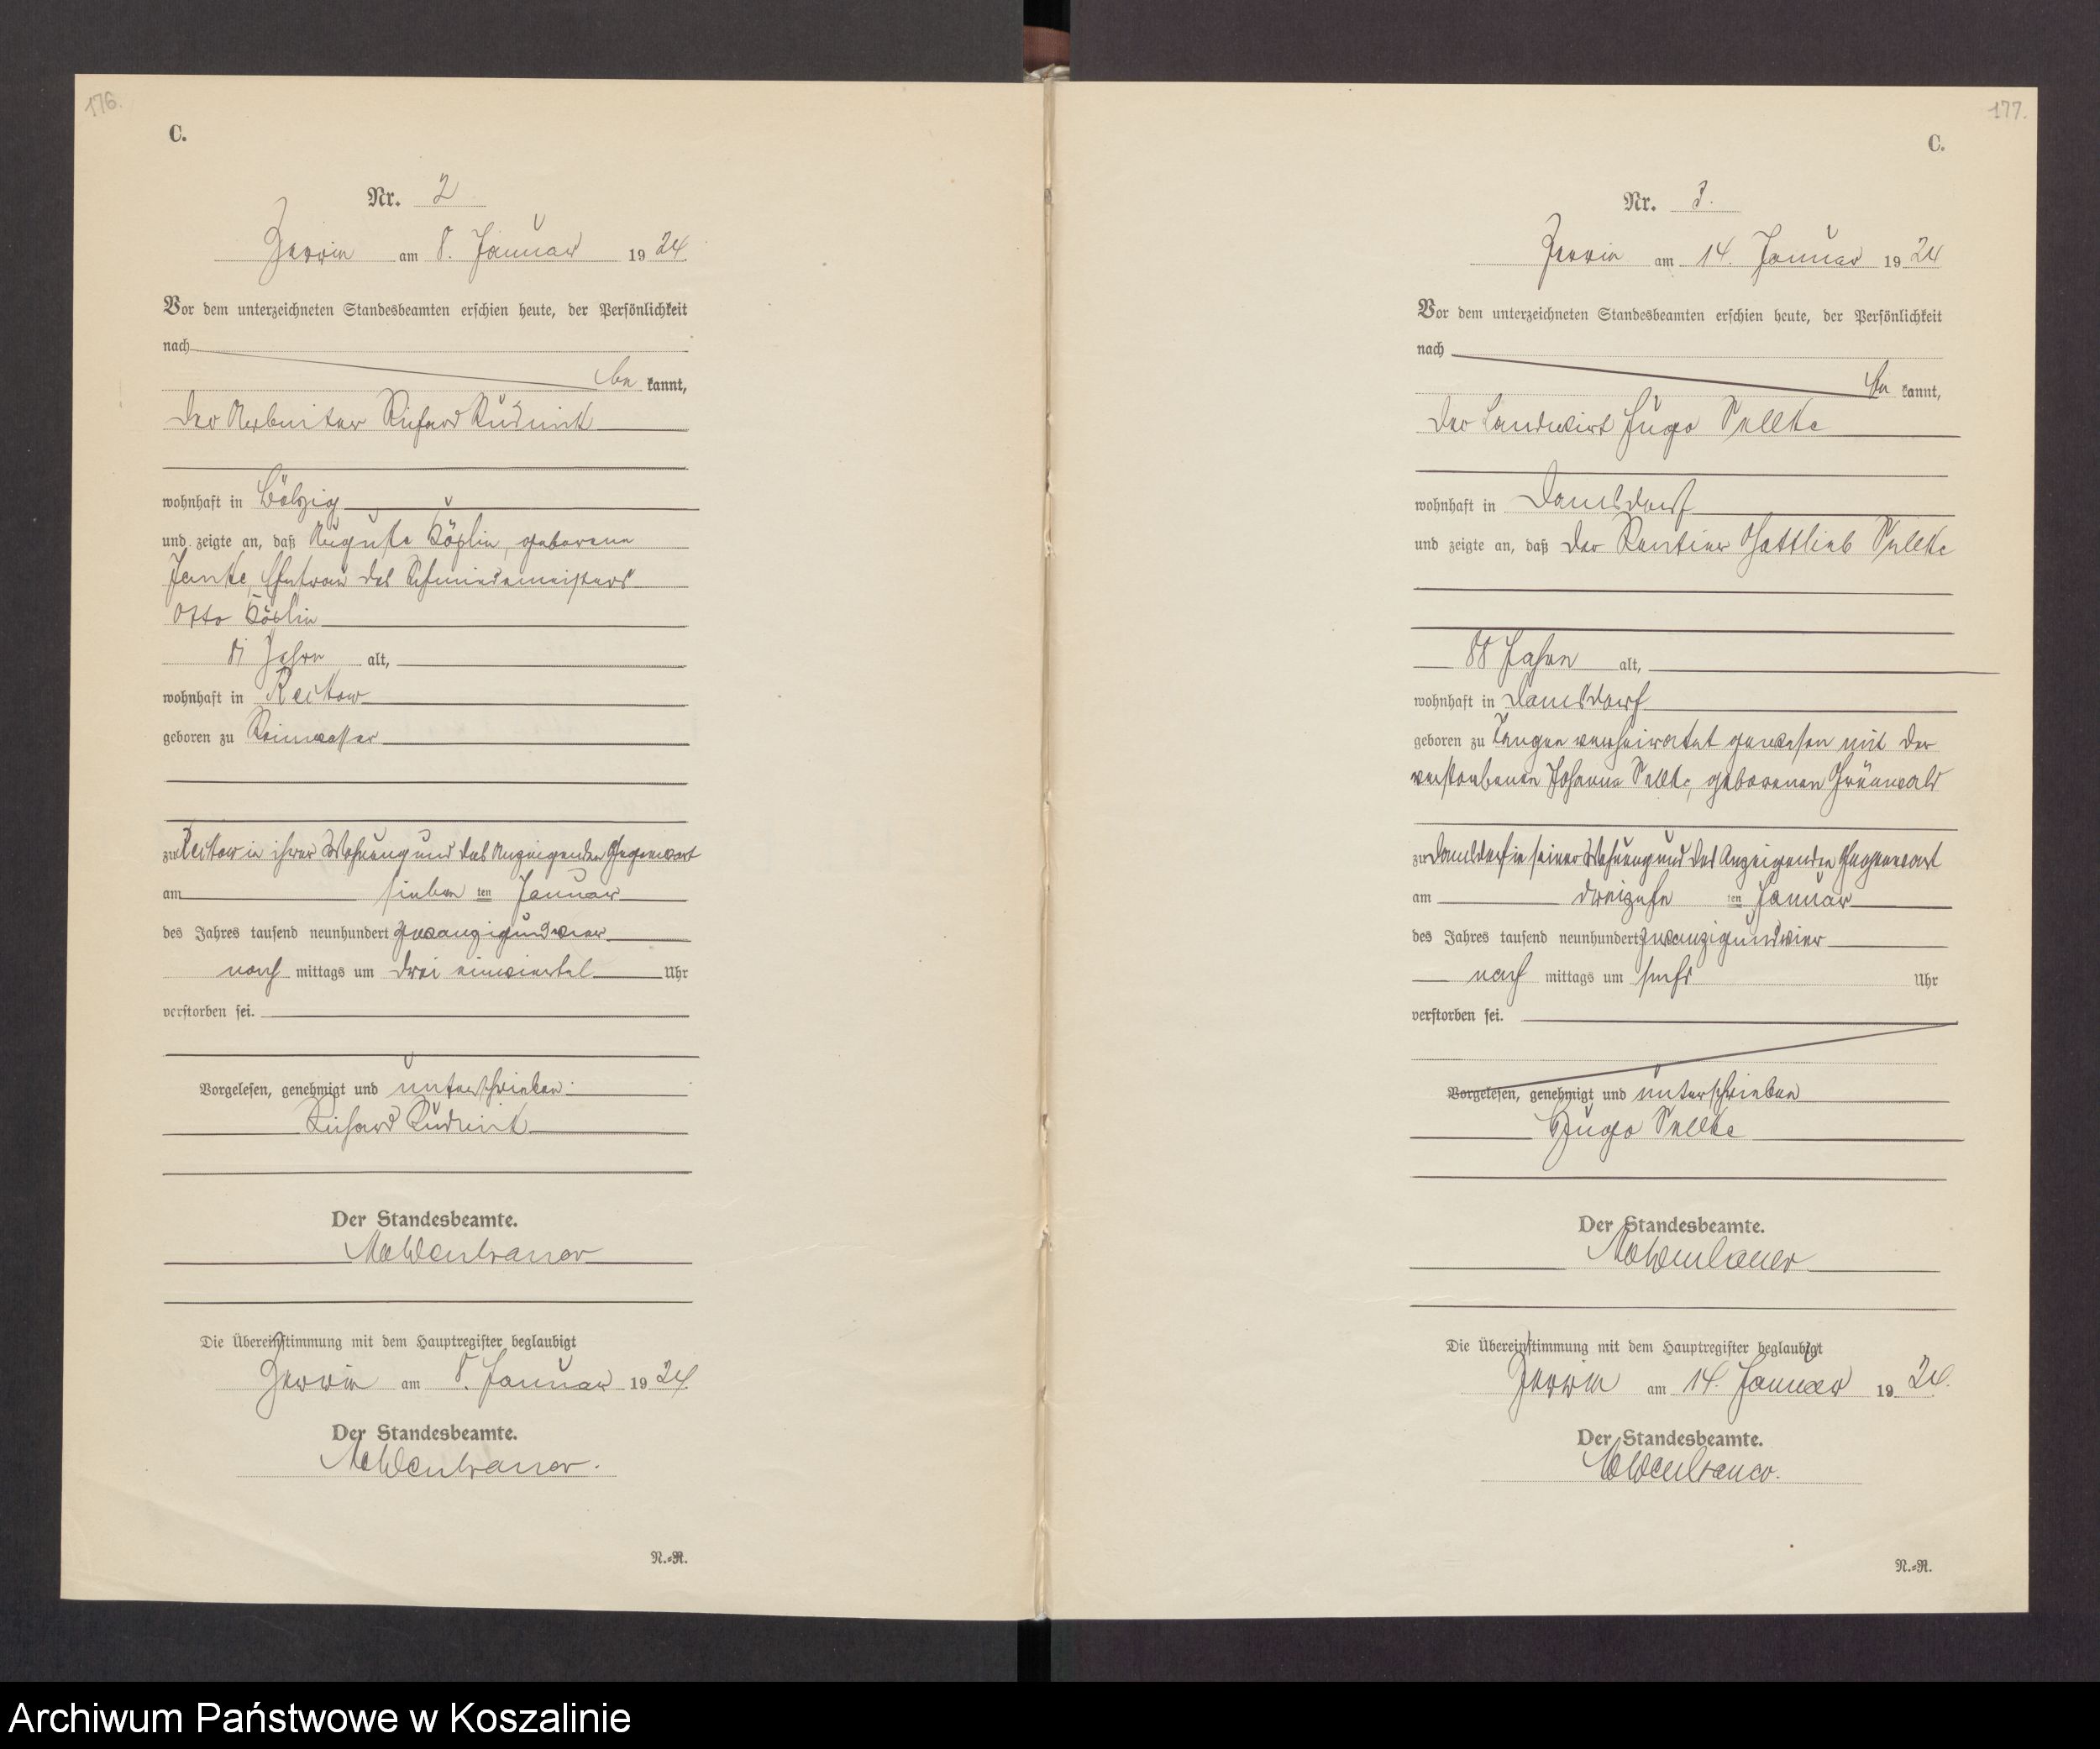 176.
C.
Nr. 2
Zerrin am 8. Januar 1924.
Vor dem unterzeichneten Standesbeamten erschien heute, der Persönlichkeit
nach
be kannt,
der Arbeiter Richard Rudnik
wohnhaft in Bölzig
und zeigte an, daß Auguste Köplin, geborene
Janke, Ehefrau des Schmiedemeisters
Otto Köplin
81 Jahre alt,
wohnhaft in Reckow
geboren zu Reinwasser
zu Reckow in ihrer Wohnung und des Anzeigenden Gegenwart
am sieben ten Januar
des Jahres tausend neunhundert zwanzigundvier
nach mittags um drei einviertel Uhr
verstorben sei.
Vorgelesen, genehmigt und unterschrieben.
Richard Rudnik
Der Standesbeamte.
Die Übereinstimmung mit dem Hauptregister beglaubigt
Zerrin am 8. Januar 1924.
Der Standesbeamte.
N.=R.
177.
C.
Nr. 3.
Zerrin am 14. Januar 1924
Vor dem unterzeichneten Standesbeamten erschien heute, der Persönlichkeit
nach
be kannt,
der Landwirt Hugo Sellke
wohnhaft in Damsdorf
und zeigte an, daß der Rentier Gottlieb Sellke
88 Jahre alt,
wohnhaft in Damsdorf
geboren zu Tangen verheiratet gewesen mit der
verstorbenen Johanna Sellke, geborenen Grünwald
zu Damsdorf in seiner Wohnung und des Anzeigenden Gegenwart
am dreizehn ten Januar
des Jahres tausend neunhundert zwanzigundvier
nach mittags um sechs Uhr
verstorben sei.
Vorgelesen, genehmigt und unterschrieben
Hugo Sellke
Der Standesbeamte.
Die Übereinstimmung mit dem Hauptregister beglaubigt
Zerrin am 14. Januar 1924.
Der Standesbeamte.
N.=R.
Archiwum Państwowe w Koszalinie